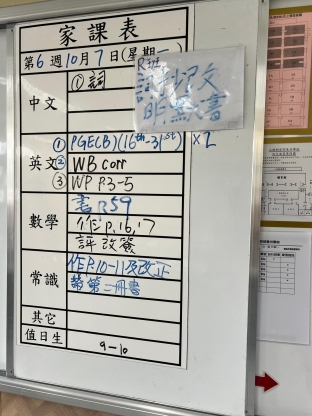 家課表
第6週10月7日(星期一
R班
中文
①詞
英文
① PGE(CB)(16th-31st) ×2
② WB corr
③ WP P.3-5
數學
書P.59
作P.16,17
評改簽
常識
作P.10-11及改正
帶第二冊書
其它
值日生
9-10